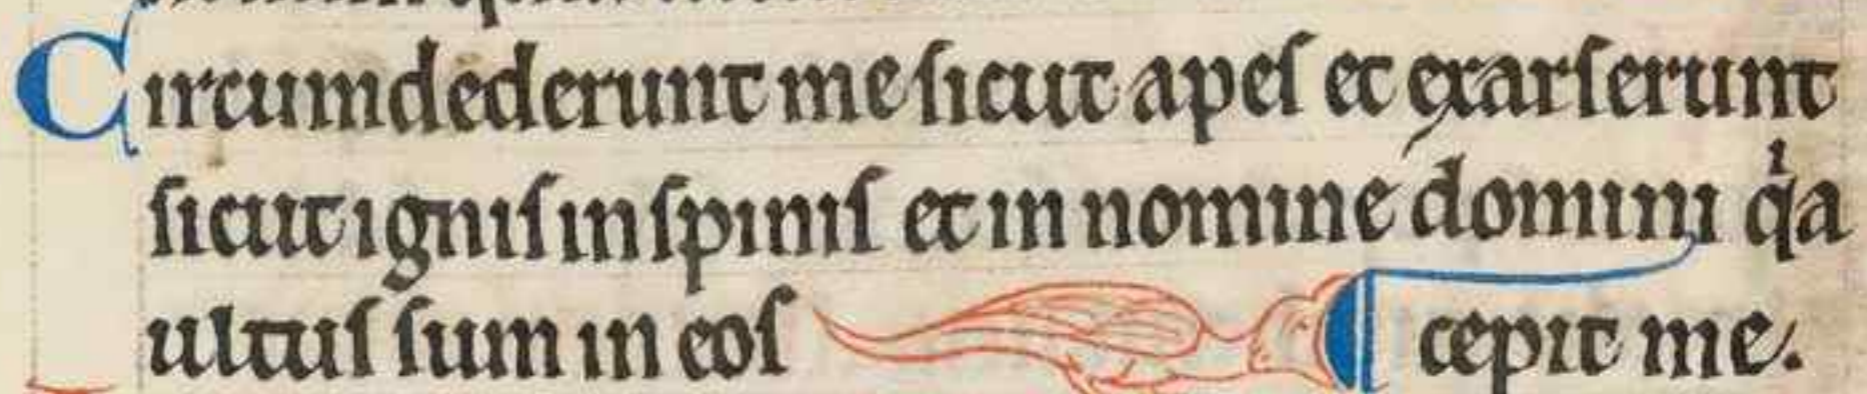 Circumdederunt me ſicut apeſ et exarſerunt
ſicut igniſ in ſpiniſ et in nomine domini qͥa
ultuſ ſum in eoſ ¶ cepit me.